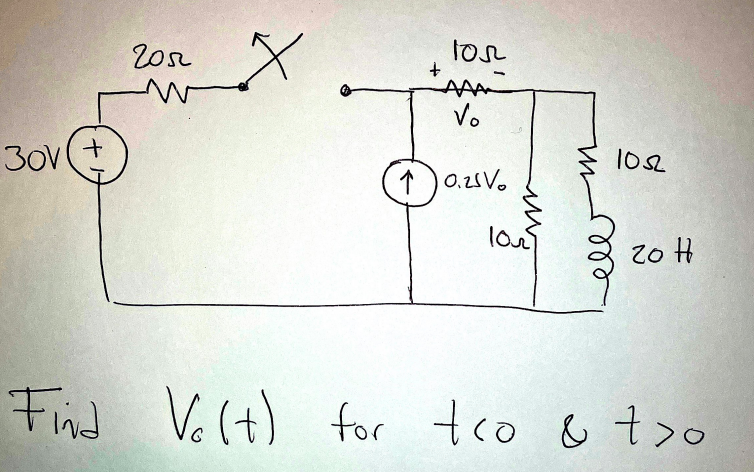 20Ω
10Ω
+ -
V₀
30V
+
-
0.25V₀
10Ω
10Ω
20 H
Find V₀(t) for t<0 & t>0